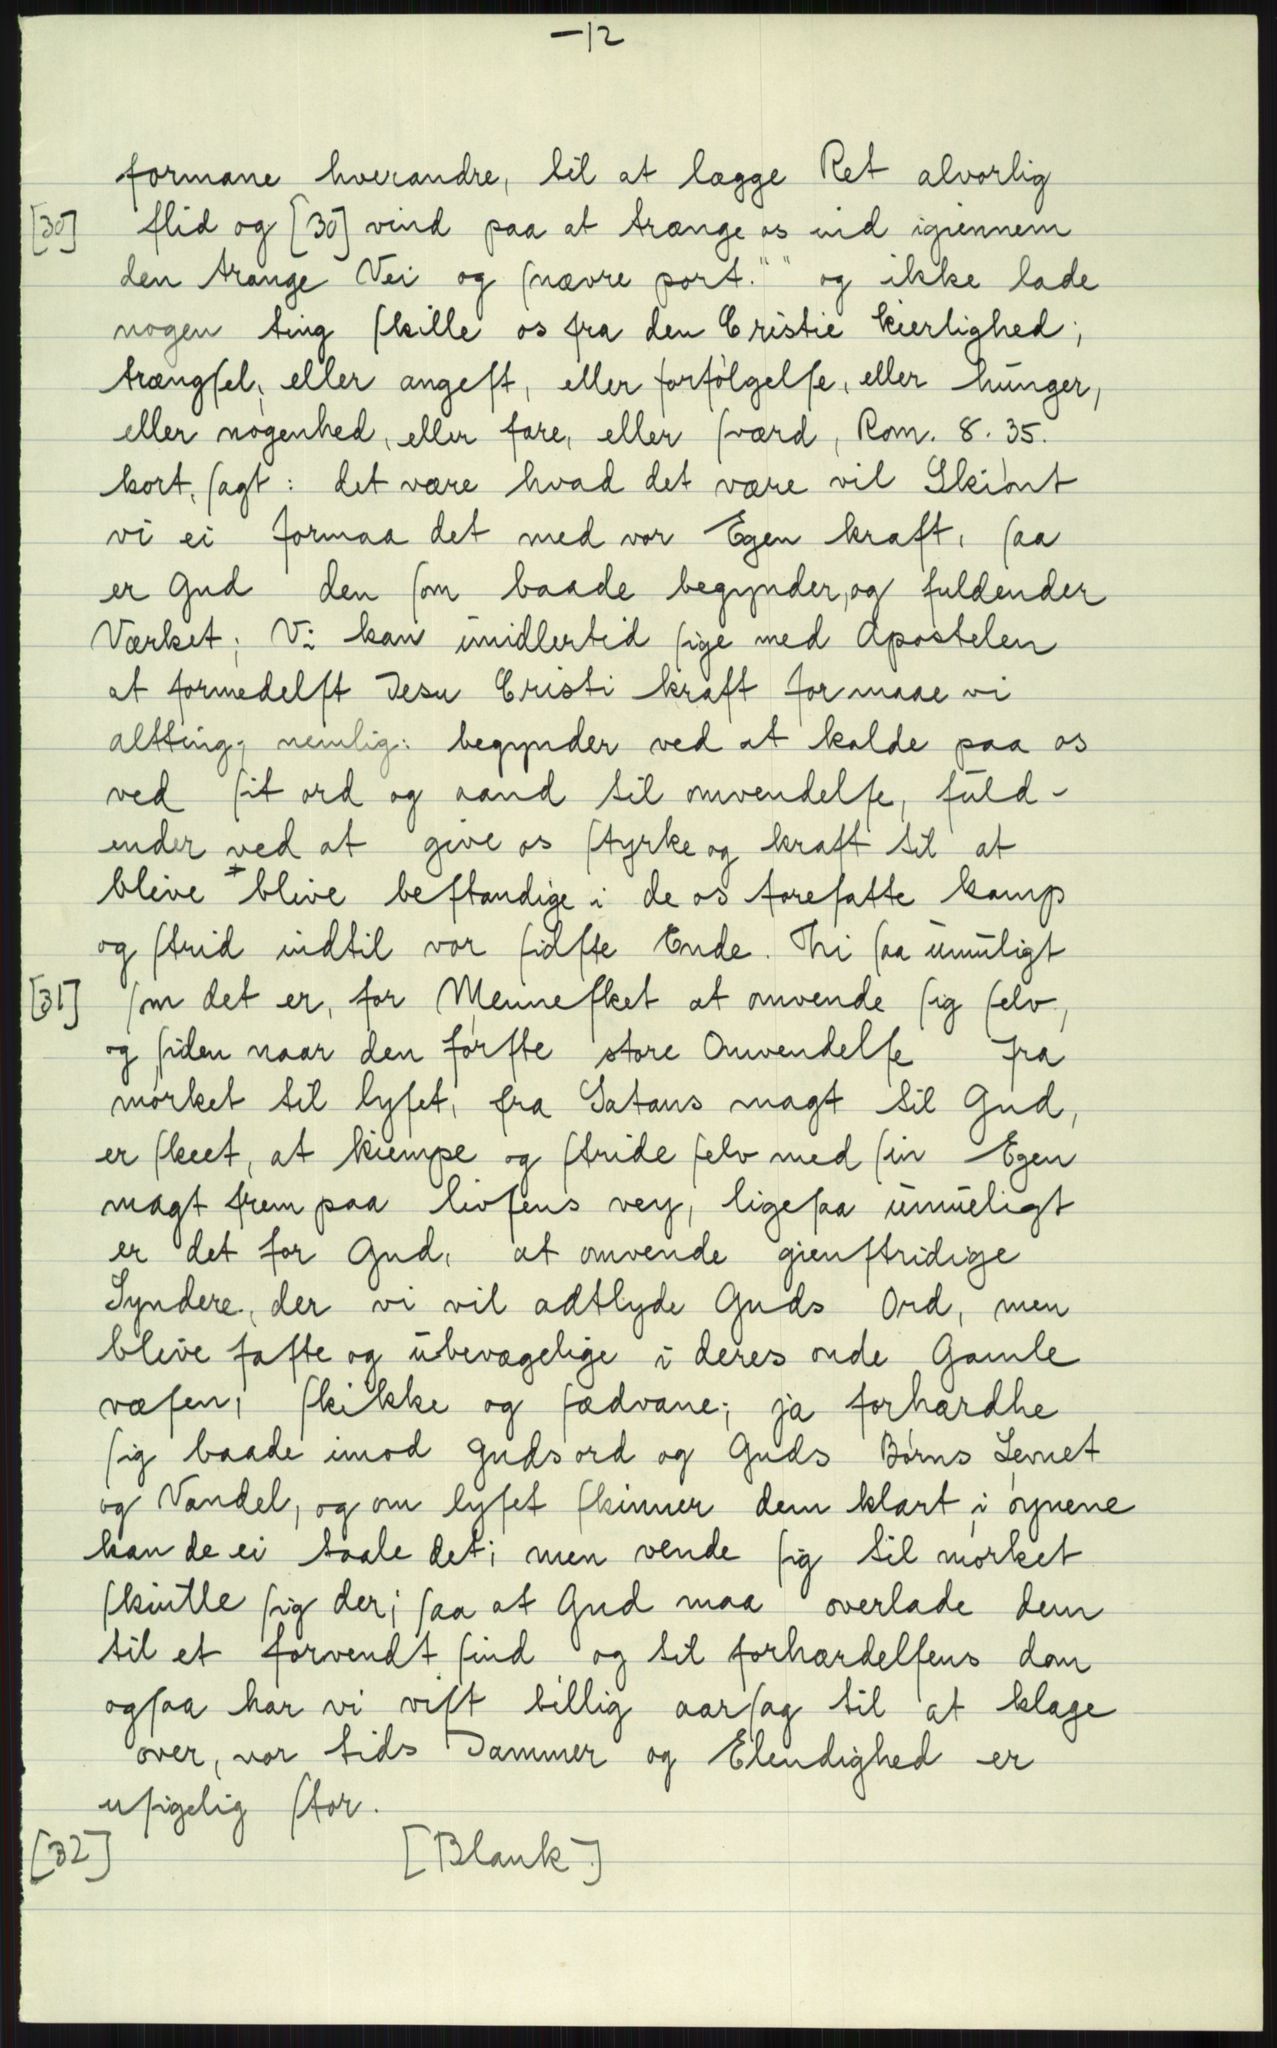 -12
formane hverandre, til at lægge Ret alvorlig
[30] flid og [30] vind paa at trænge os ind igiennem
den trange Vei og ſnævre port." " og ikke lade
nogen ting ſkille os fra den Cristie kierlighed;
trængſel; eller angeſt, eller forfølgelſe, eller hunger,
eller nøgenhed, eller fare, eller ſværd, Rom. 8. 35.
kort, ſagt: det være hvad det være vil Skiønt
vi ei formaa det med vor Egen kraft, ſaa
er Gud den ſom baade begynder, og fuldender
Værket; Vi kan imidlertid ſige med Apostelen
at formedelſt Jesu Cristi kraft formaae vi
altting, nemlig: begynder ved at kalde paa os
ved ſit ord og aand til omvendelſe, fuld-
ender ved at give os ſtyrke og kraft til at
blive + blive beſtandige i de os foreſatte kamp
og ſtrid indtil vor ſidſte Ende. Thi ſaa umuligt
[31] ſom det er, for Menneſket at omvende ſig ſelv,
og ſiden naar den førſte store Omvendelſe fra
mørket til lyſet, fra Satans magt til Gud,
er ſkeet, at kiempe og ſtride ſelv med ſin Egen
magt frem paa livſens vey, ligeſaa umueligt
er det for Gud, at omvende gienſtridige
Syndere, der vi vil adtlyde Guds Ord, men
blive faſte og ubevægelige i deres onde Gamle
væſen, ſkikke og ſædvane; ja forhærdhe
ſig baade imod guds ord og Guds Børns Levnet
og Vandel, og om lyſet ſkinner dem klart i øynene
kan de ei taale det; men vende ſig til mørket
ſkiutle ſig der; ſaa at Gud maa overlade dem
til et forvendt ſind og til forhærdelſens dom
ogſaa har vi viſt billig aarſag til at klage
over, vor tids Jammer og Elendighed er
uſigelig ſtor.
[32] [Blank]